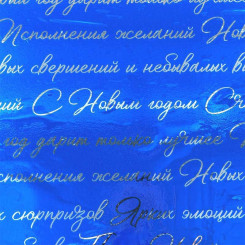 год дарит только лучшее
Исполнения желаний Нов
вых свершений и небывалых в
ний С Новым годом Са
год дарит только лучшее
сполнения желаний Новых
х сюрпризов Ярких эмоций